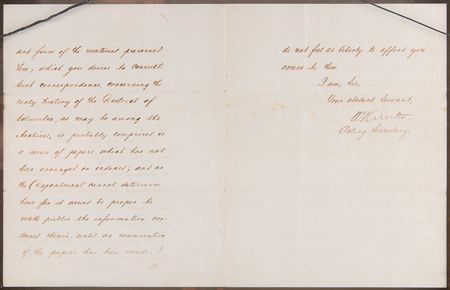 and form of the material preserved
here, which you desire to consult.
Such correspondence, concerning the
early history of the District of
Columbia, as may be among the
Archives, is probably comprised in
a series of papers which has not
been arranged or indexed; and as
the Department cannot determine
how far it would be proper to
made public the information con-
tained therein, until an examination
of the papers has been made, I
do
do not feel at liberty to afford you
access to them.
I am, Sir,
Your obedient Servant,
W Hunter
Acting Secretary